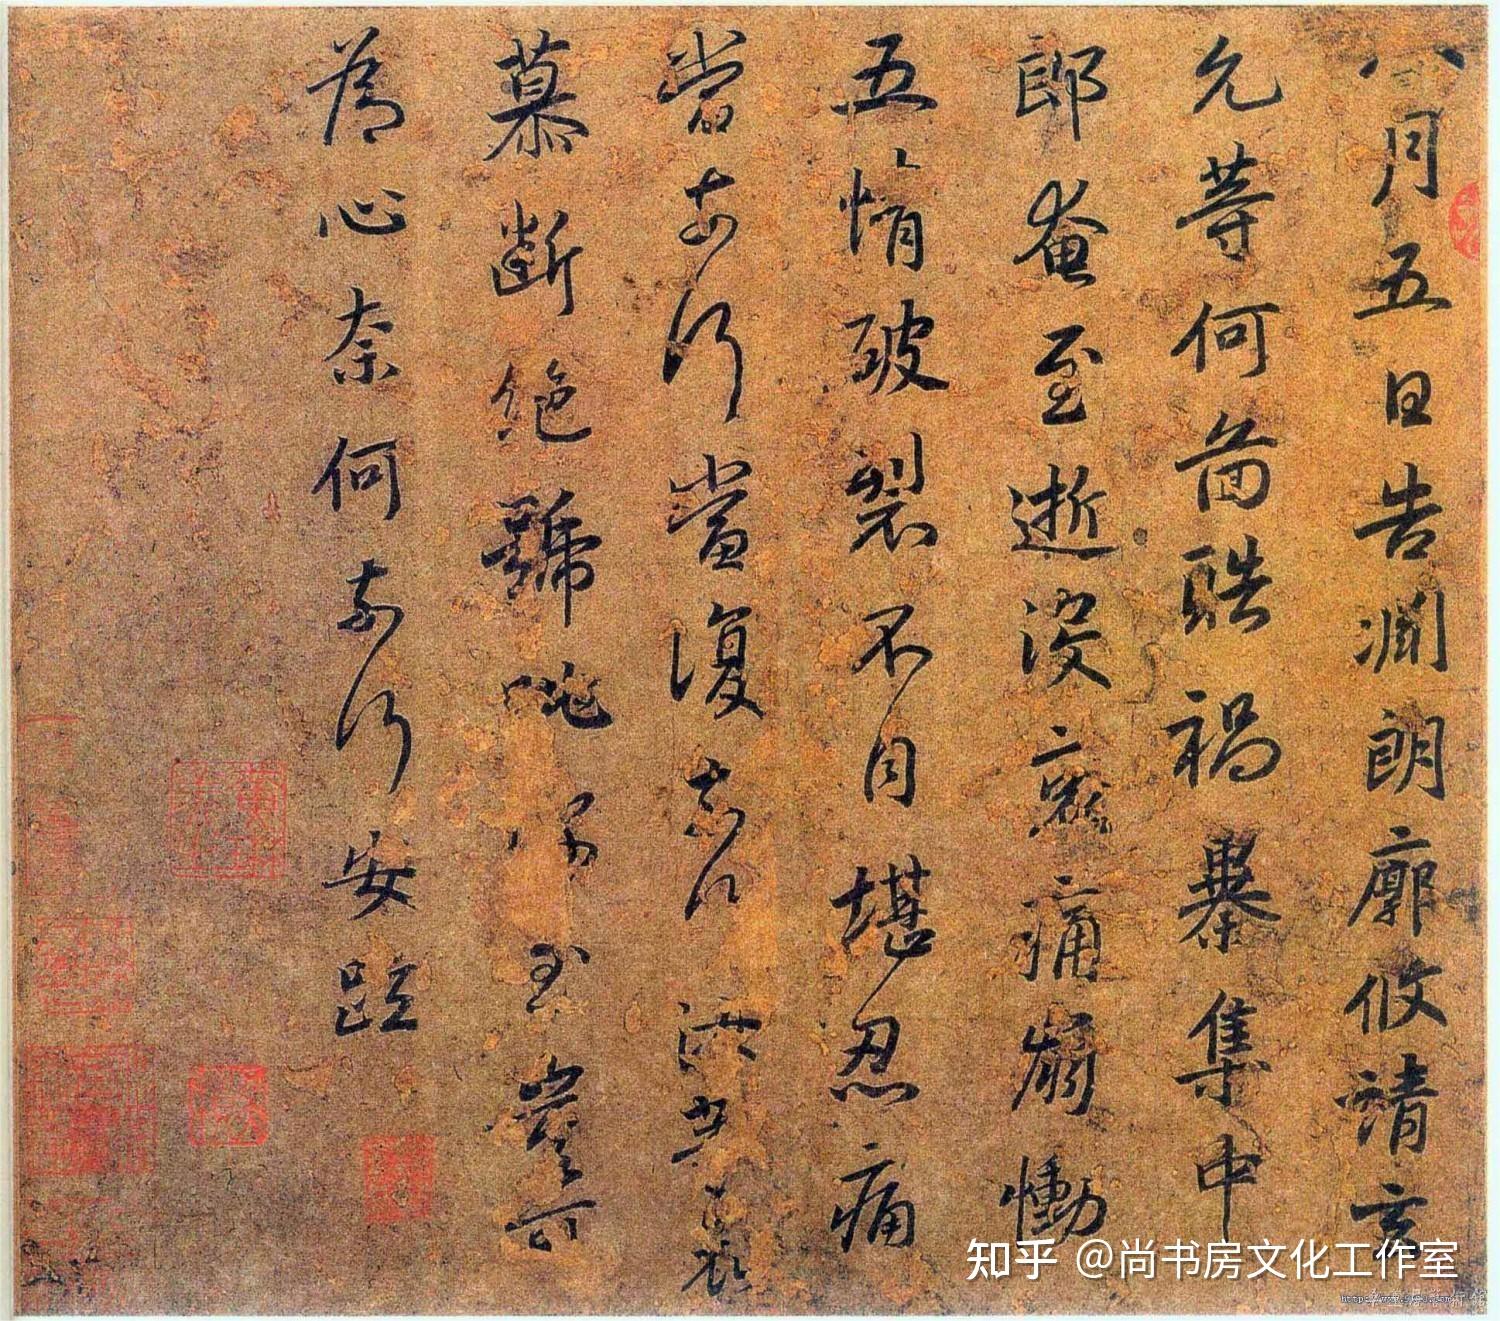 八月五日告淵朗廓攸靖玄
允等何啚酷禍暴集中
郎奄至逝沒哀痛崩慟
五情破裂不自堪忍痛
當奈何當復奈何汝等哀
慕斷絕號咷深至豈可
為心奈何奈何安疏
知乎 @尚书房文化工作室